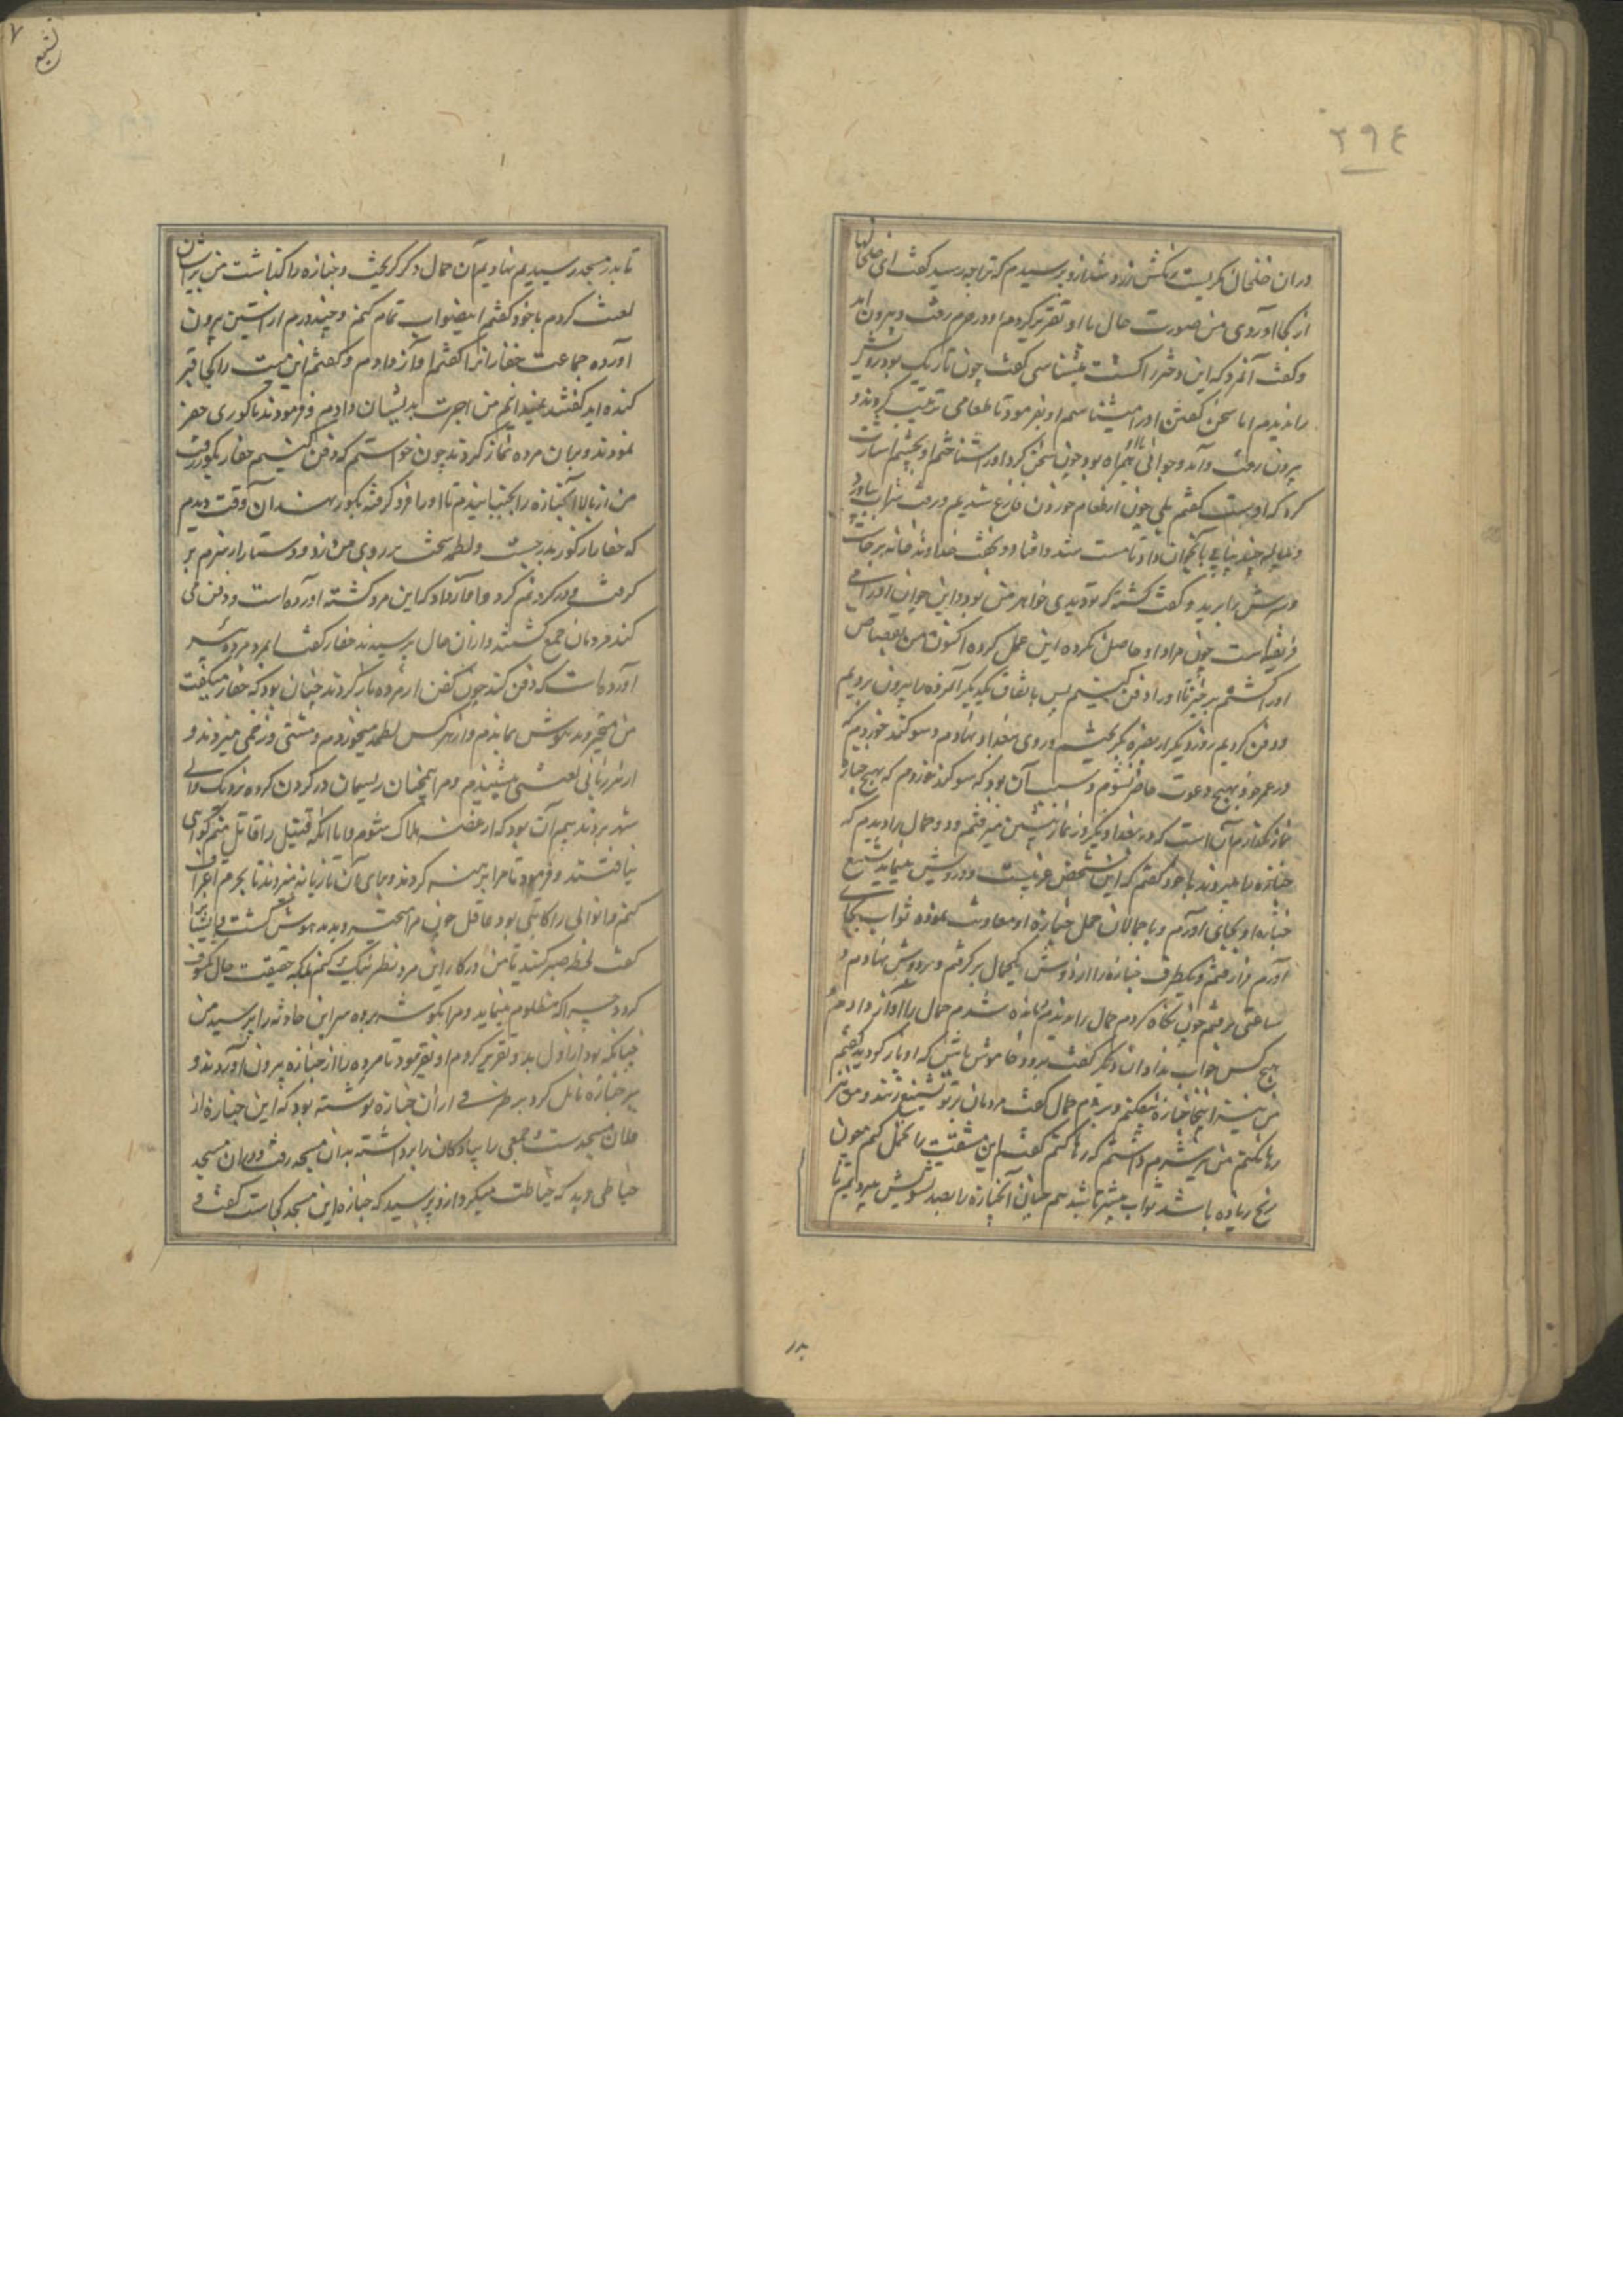 ٢٩٤
در ان خلخال نگریست رنگش زرد شد ازو پرسیدم که ترا چه رسید گفت این خلخالها
از کجا آوردی من صورت حال با او تقریر کردم او در خرم رفت و بیرون آمد
و گفت آنمرد که این دختر را کشت میشناسی گفت چون تاریک بود رویش
را ندیدم اما سخن گفتن او را میشناسم او بفرمود تا طعامی ترتیب کردند و
بیرون رفت و آمد و جوانی با او همراه بود چون سخن کرد او را شناختم او بچشم اشارت
کرد که اوست گفتم بلی چون از طعام خوردن فارغ شدیم و رفت شراب بیاورد
و پیاله چند پیاپی بآنجوان داد تا مست شد و افتاد و بخفت خداوند خانه برخاست
و سرش را ببرید و گفت کشته که تو دیدی خواهر من بود و این جوان او را می
فریفته است چون مراد او حاصل نکرده این عمل کرده اکنون من بقصاص
او را کشتم برخیز تا او را دفن کنیم پس باتفاق یکدیگر آنمرده را بیرون بردیم
و دفن کردیم روز دیگر از بصره بگریختم و روی ببغداد نهادم و سوگند خوردم که
در عمر خود بهیچ دعوت حاضر نشوم و سبب آن بود که سوگند خوردم که بهیچ جنازه
نماز نگذارم آن است که در بغداد یکروز نماز پیشین میرفتم و دو حمال را دیدم که
جنازه را میبردند با خود گفتم که این شخص غریبست و درویش مینماید تشییع
جنازه او بجای آورم و با حمالان حمل جنازه او معاونت نموده ثواب بجای
آورم فراز رفتم و یکطرف جنازه را از دوش یکحمال برگرفتم و بر دوش نهادم و
ساعتی برفتم چون نگاه کردم حمال را ندیدم مانده شدم حمال را آواز دادم
هیچ کس جواب نداد آن دیگر گفت برو و خاموش باش که او باز گردید گفتم
من نیز اینجا جنازه بیفکنم و بروم حمال گفت مردمان بر تو تشنیع زنند و من نیز
رها نکنم من نیز شرم داشتم که رها کنم گفتم این مشقت را تحمل کنم چون
رنج زیاده باشد ثواب بیشتر باشد هم چنان آنجنازه را بصد تشویش میبردیم تا
بدر
تشییع
تا بدر مسجد رسیدیم بنهادیم آن حمال دگر گریخت و جنازه را گذاشت من بر ایشان
لعنت کردم با خود گفتم اینثواب تمام کنم و چند درم از آستین بیرون
آورده جماعت حفارانرا گفتم و آواز دادم و گفتم این میت را کجا قبر
کنده اید گفتند نمیدانیم من اجرت بدیشان دادم و فرمودند تا گوری حفر
نمودند و بران مرده نماز کردند چون خواستم که دفن کنیم حفار بگور رفت
من از بالا آنجنازه را بجنبانیدم تا او را فرو گرفته بگور نهند آن وقت دیدم
که حفار از گور بدر جست و لطمه سخت بر روی من زد و دستار از سرم بر
گرفت و در گردنم کرد و آواز داد که این مرد کشته آورده است و دفن می
کند مردمان جمع گشتند و ازان حال پرسیدند حفار گفت اینمرد مرده بی سر
آورده است که دفن کند چون کفن از مرده باز کردند چنان بود که حفار میگفت
من متحیر و مدهوش بماندم و از هر کس لطمه میخوردم و مشتی و زخمی میزدند و
از هر زبانی لعنتی میشنیدم و مرا همچنان ریسمان در گردن کرده نزدیک والی
شهر بردند بیم آن بود که از غصه هلاک شوم و با آنکه قتیل را قاتل منم گواهی
نیافتند و فرمود تا مرا برهنه کردند و بجای آن تازیانه میزدند تا بجرم اعتراف
کنم و انوالی را کاتبی بود عاقل چون مرا متحیر دید و مدهوش گشت و ایشانرا
گفت لحظه صبر کنید تا من در کار این مرد نظر نیک کنم بلکه حقیقت حال مکشوف
گردد چرا که مظلوم مینماید و مرا بگوشه برده سر این حادثه را پرسید من
چنانکه بود از اول بدو تقریر کردم او بفرمود تا مرده را از جنازه بیرون آوردند و
بر جنازه تامل کرد بر طرفی از ان جنازه نوشته بود که این جنازه از
فلان مسجدست جمعی را پیادگان را برداشته بدان مسجد رفت و دران مسجد
خیاطی دید که خیاطت میکرد ازو پرسید که جنازه این مسجد کجاست گفت